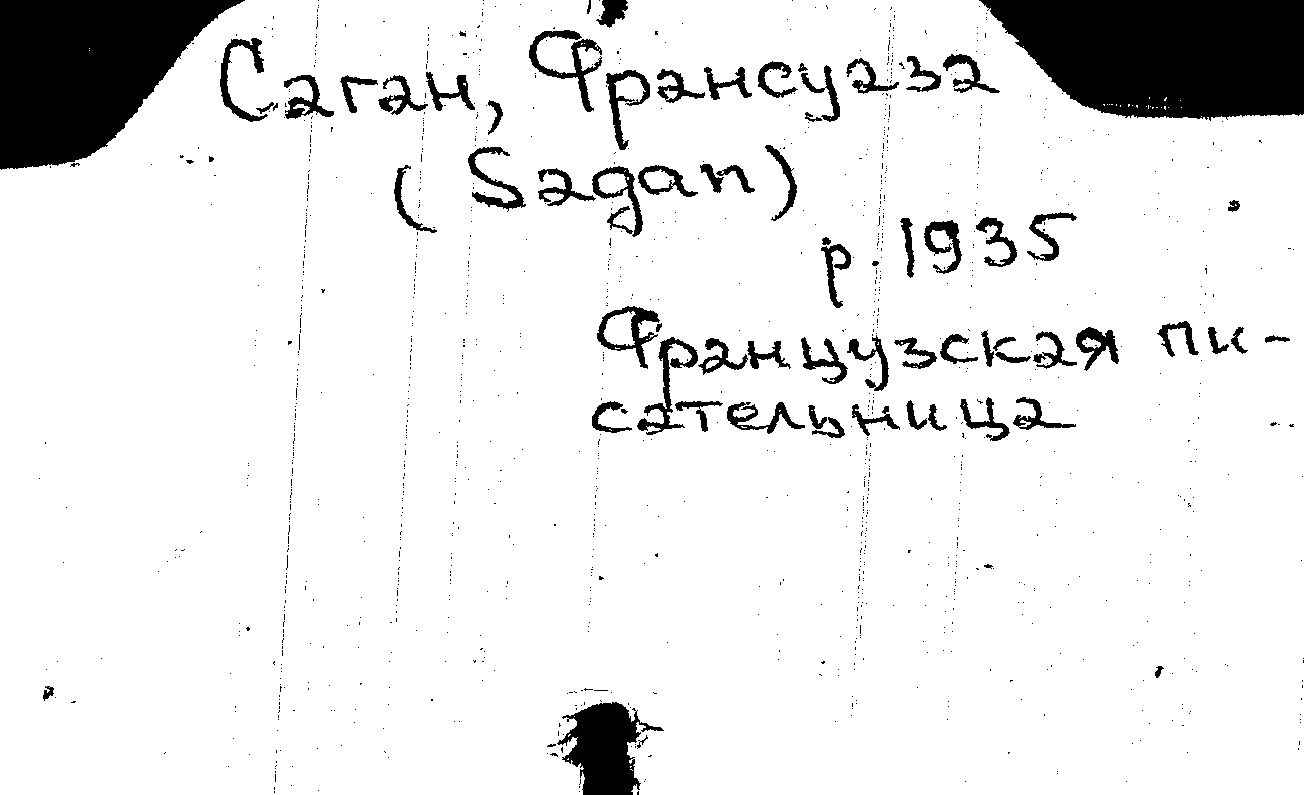 Саган, Франсуаза
(Sagan)
р. 1935
Французская пи-
сательница